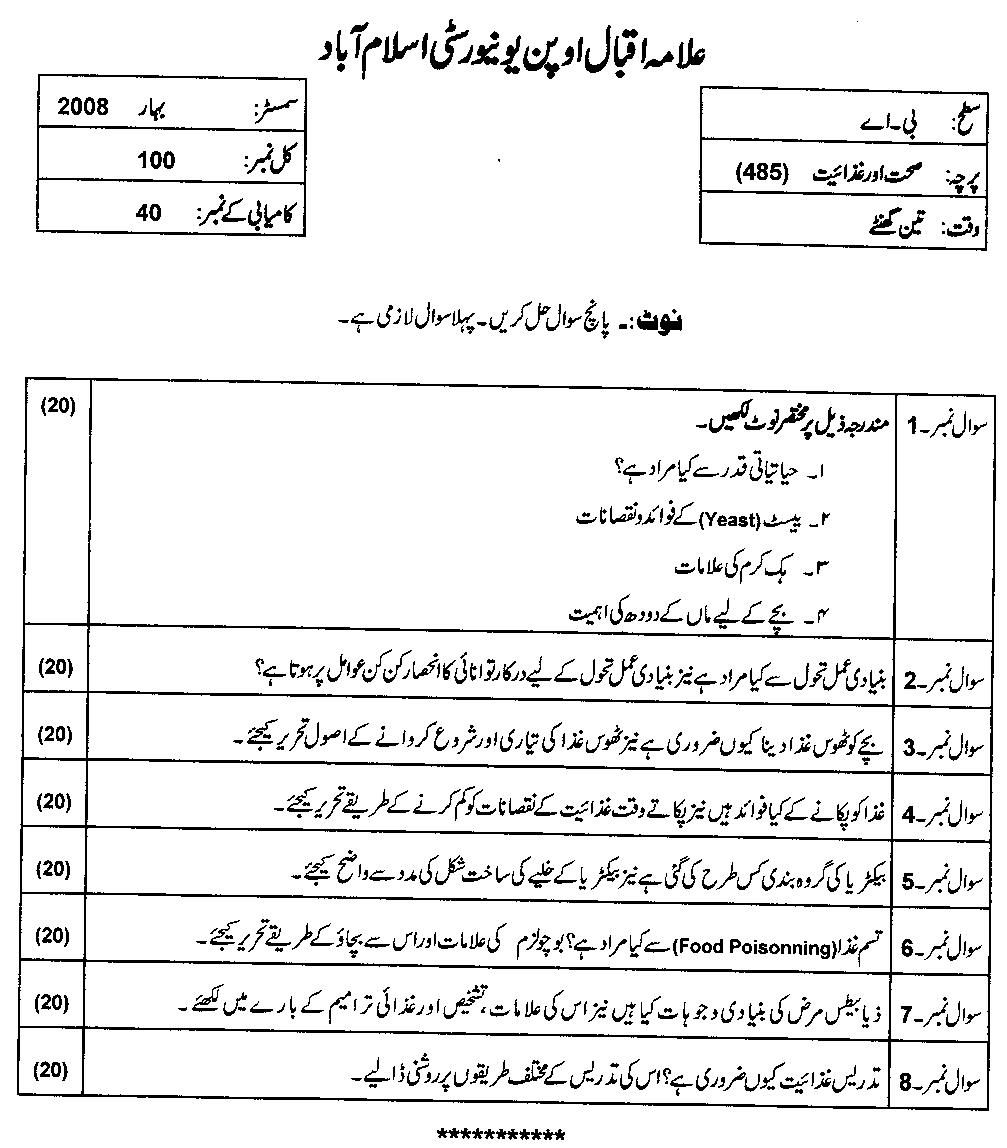 علامہ اقبال اوپن یونیورسٹی اسلام آباد
سطح: بی۔اے
پرچہ: صحت اور غذائیت (485)
وقت: تین گھنٹے
سمسٹر: بہار 2008
کل نمبر: 100
کامیابی کے نمبر: 40
نوٹ:۔ پانچ سوال حل کریں۔ پہلا سوال لازمی ہے۔
سوال نمبر۔1 مندرجہ ذیل پر مختصر نوٹ لکھیں۔ (20)
۱۔ حیاتیاتی قدر سے کیا مراد ہے؟
۲۔ ییسٹ (Yeast) کے فوائد و نقصانات
۳۔ ہک کرم کی علامات
۴۔ بچے کے لیے ماں کے دودھ کی اہمیت
سوال نمبر۔2 بنیادی عمل تحول سے کیا مراد ہے نیز بنیادی عمل تحول کے لیے درکار توانائی کا انحصار کن کن عوامل پر ہوتا ہے؟ (20)
سوال نمبر۔3 بچے کو ٹھوس غذا دینا کیوں ضروری ہے نیز ٹھوس غذا کی تیاری اور شروع کروانے کے اصول تحریر کیجئے۔ (20)
سوال نمبر۔4 غذا کو پکانے کے کیا فوائد ہیں نیز پکاتے وقت غذائیت کے نقصانات کو کم کرنے کے طریقے تحریر کیجئے۔ (20)
سوال نمبر۔5 بیکٹریا کی گروہ بندی کس طرح کی گئی ہے نیز بیکٹریا کے خلیے کی ساخت شکل کی مدد سے واضح کیجئے۔ (20)
سوال نمبر۔6 تسم غذا (Food Poisonning) سے کیا مراد ہے؟ بوچولزم کی علامات اور اس سے بچاؤ کے طریقے تحریر کیجئے۔ (20)
سوال نمبر۔7 ذیابیطس مرض کی بنیادی وجوہات کیا ہیں نیز اس کی علامات، تشخیص اور غذائی ترامیم کے بارے میں لکھئے۔ (20)
سوال نمبر۔8 تدریس غذائیت کیوں ضروری ہے؟ اس کی تدریس کے مختلف طریقوں پر روشنی ڈالیے۔ (20)
***********